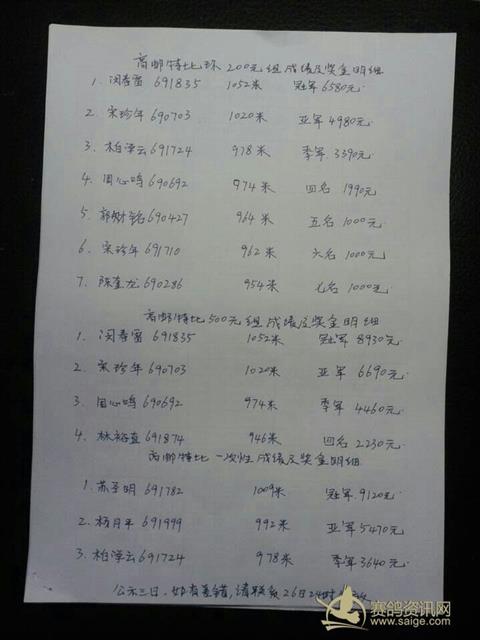 高邮特比环200元组成绩及奖金明细
1. 闵寿富 691835 1052米 冠军 6580元
2. 宋珍年 690703 1020米 亚军 4980元
3. 柏学云 691724 978米 季军 3390元
4. 周心鸣 690692 974米 四名 1990元
5. 郭树铭 690427 964米 五名 1000元
6. 宋珍年 691710 962米 六名 1000元
7. 陈奎龙 690286 954米 七名 1000元
高邮特比500元组成绩及奖金明细
1. 闵寿富 691835 1052米 冠军 8930元
2. 宋珍年 690703 1020米 亚军 6690元
3. 周心鸣 690692 974米 季军 4460元
4. 林裕直 691874 946米 四名 2230元
高邮特比一次性成绩及奖金明细
1. 苏圣明 691782 1009米 冠军 9120元
2. 杨月平 691999 992米 亚军 5470元
3. 柏学云 691724 978米 季军 3640元
公示三日,如有差错,请联系26日24时
赛鸽资讯网
www.saige.com